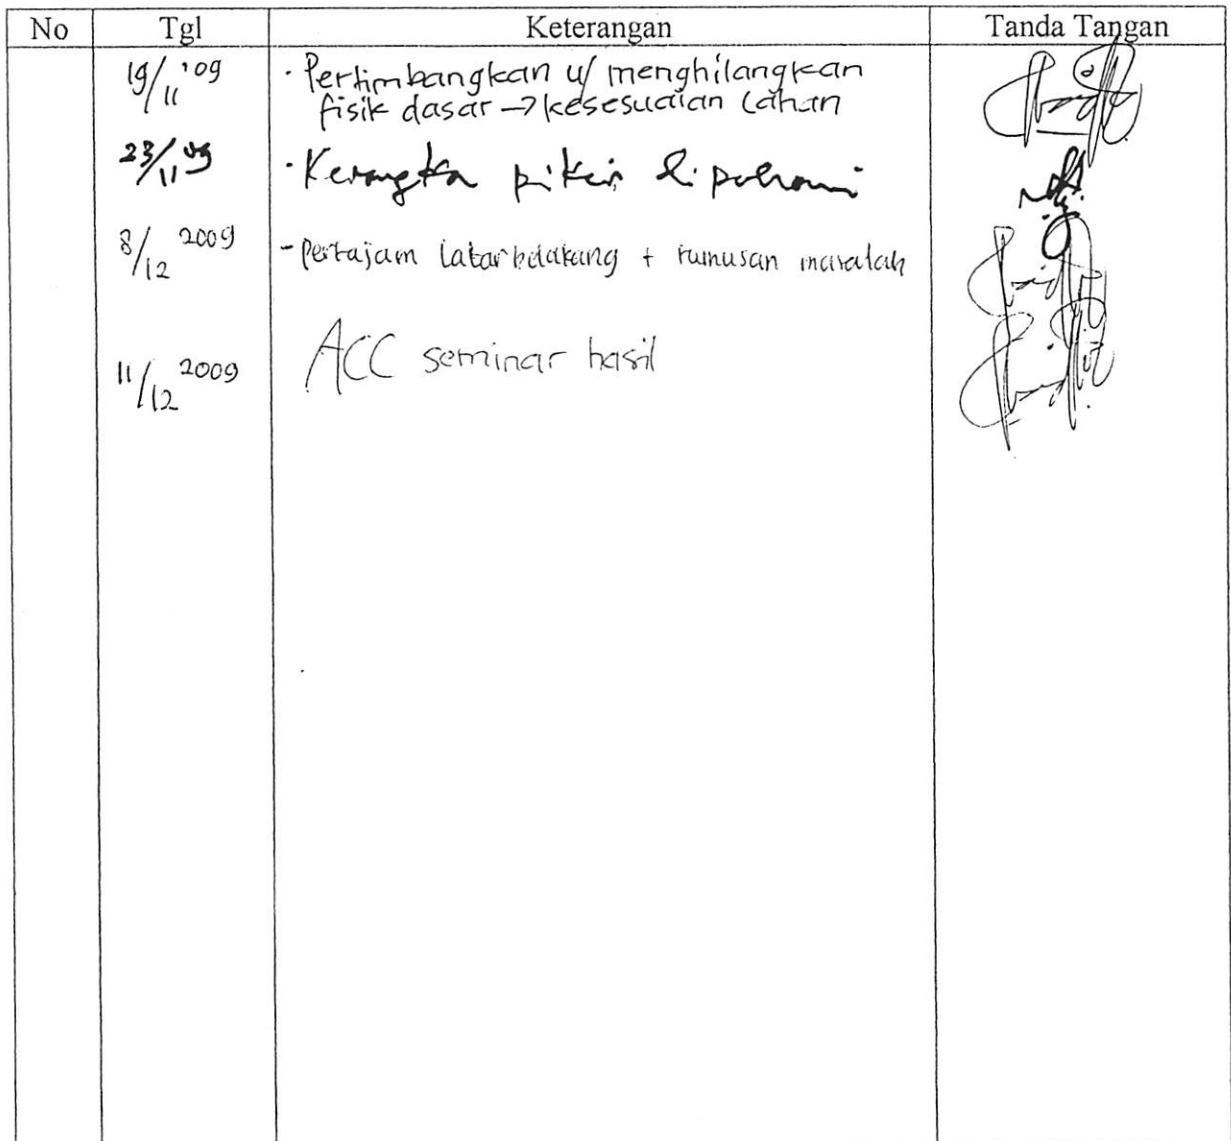 No Tgl Keterangan Tanda Tangan
19/11 '09 · Pertimbangkan u/ menghilangkan
fisik dasar → kesesuaian lahan
23/11 09 · Kerangka pikir dipahami
8/12 2009 - Pertajam latar belakang + rumusan masalah
11/12 2009 ACC seminar hasil